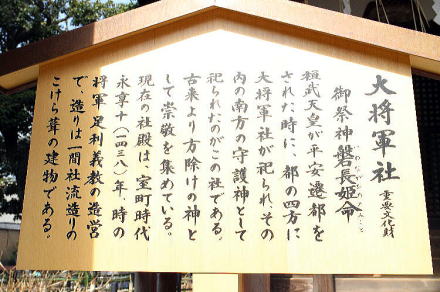 大将軍社 重要文化財
御祭神 磐長姫命
桓武天皇が平安遷都を
された時に、都の四方に
大将軍社が祀られ、その
内の南方の守護神として
祀られたのがこの社である。
古来より方除けの神と
して崇敬を集めている。
現在の社殿は、室町時代
永享十(一四三八)年、時の
将軍足利義教の造営
で、造りは一間社流造りの
こけら葺の建物である。